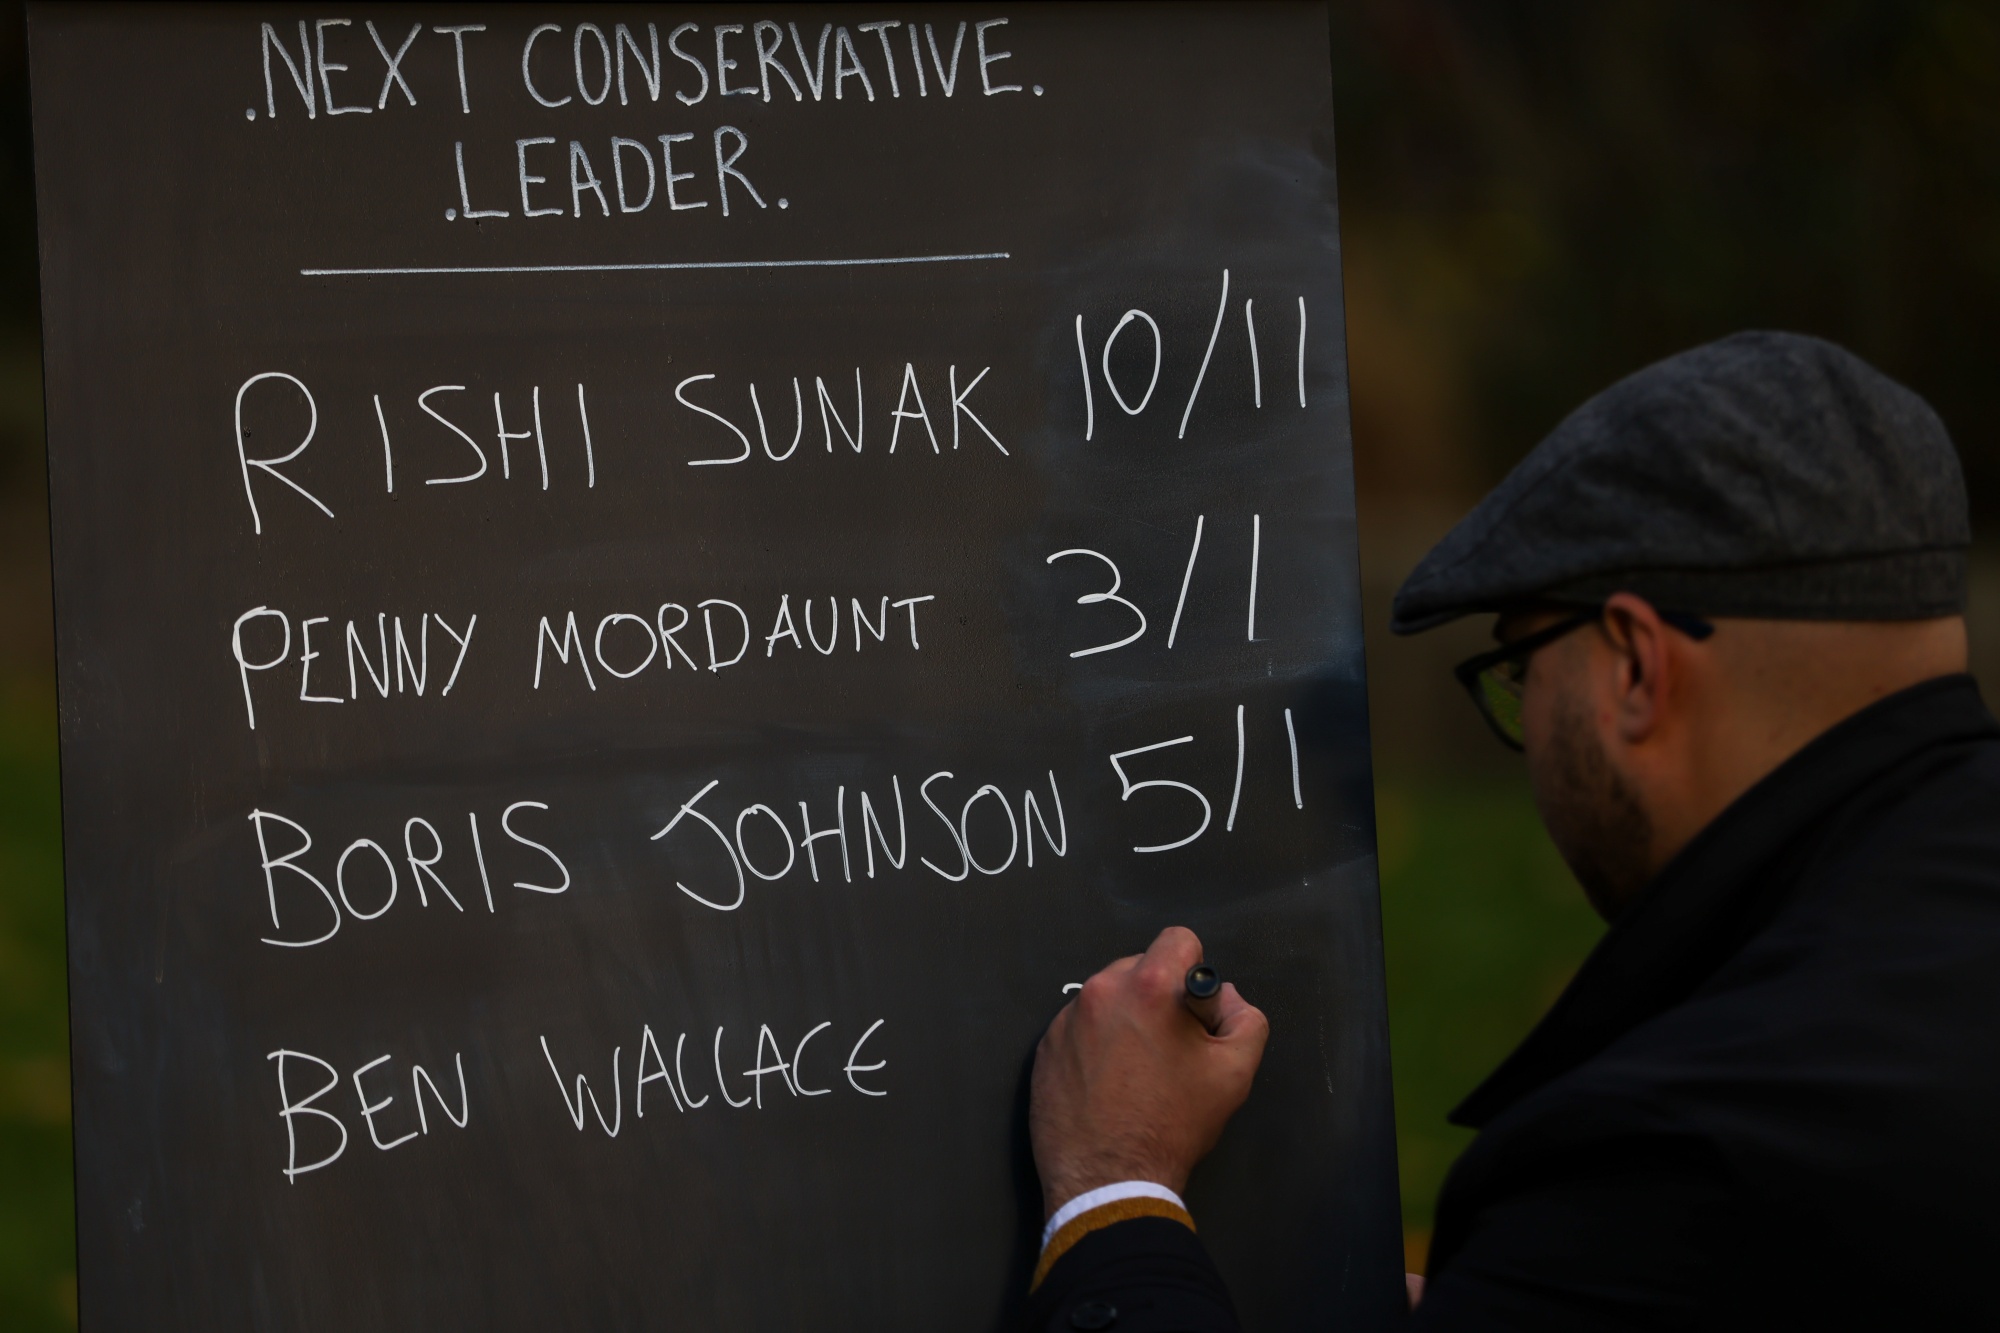 .NEXT CONSERVATIVE.
.LEADER.
RISHI SUNAK 10/11
PENNY MORDAUNT 3/1
BORIS JOHNSON 5/1
BEN WALLACE